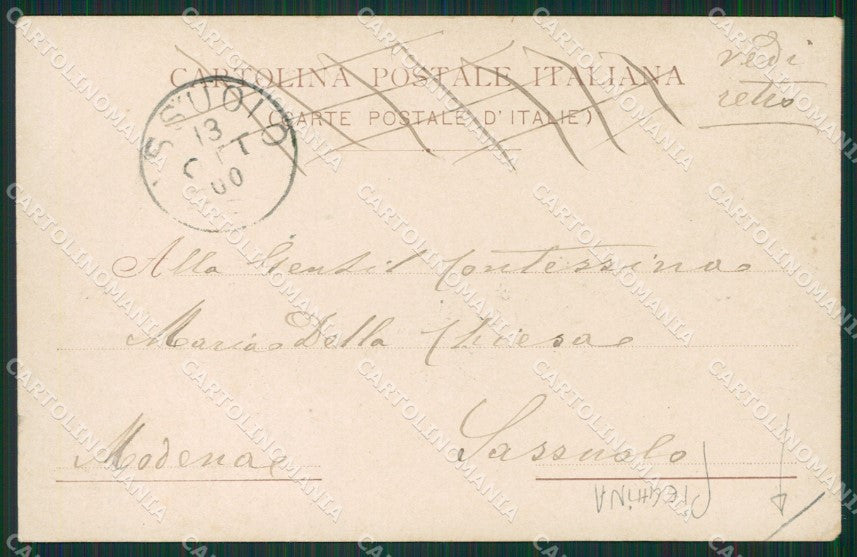 CARTOLINA POSTALE ITALIANA
(CARTE POSTALE D'ITALIE)
vedi
retro
SASSUOLO
13
OTT
00
Alla Gentil Contessina
Maria Della Chiesa
Modena
Sassuolo
PIEGHINA
CARTOLINOMANIA